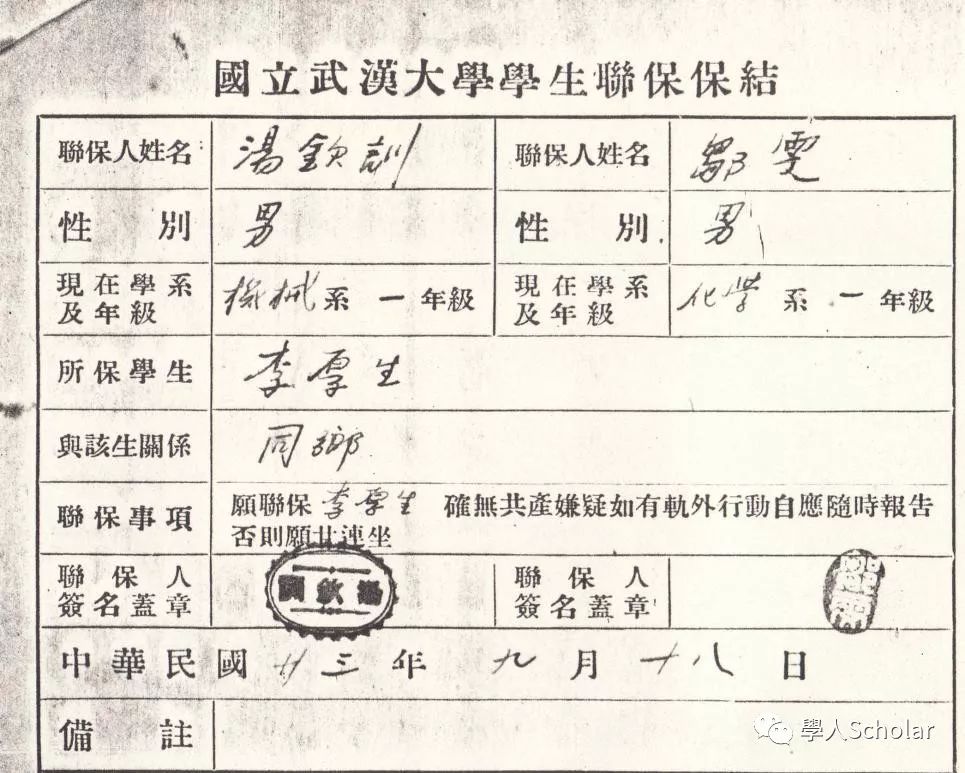 國立武漢大學學生聯保保結
聯保人姓名 湯欽訓 聯保人姓名 鄒雯
性別 男 性別 男
現在學系及年級 機械系 一年級 現在學系及年級 化学系 一年級
所保學生 李厚生
與該生關係 同鄉
聯保事項 願聯保李厚生 確無共產嫌疑如有軌外行動自應隨時報告
否則願甘連坐
聯保人 聯保人
簽名蓋章 湯欽訓 簽名蓋章
中華民國廿三年九月十八日
備註
學人Scholar